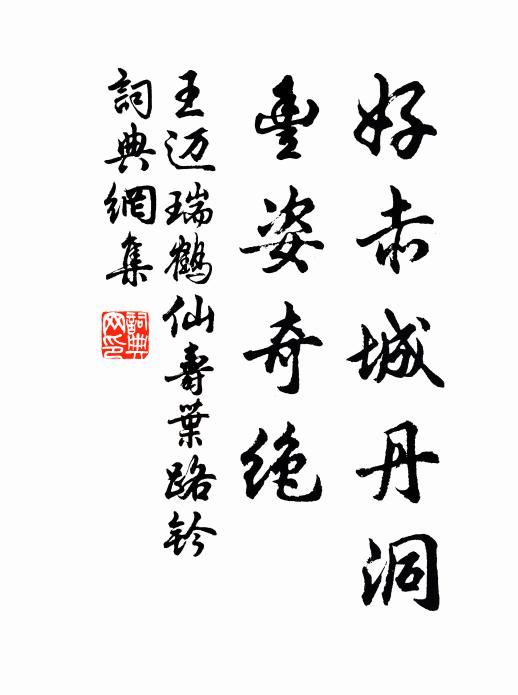 好赤城丹洞
豊姿奇绝
王迈瑞鹤仙壽葉路鈐
詞典網集
詞典网印